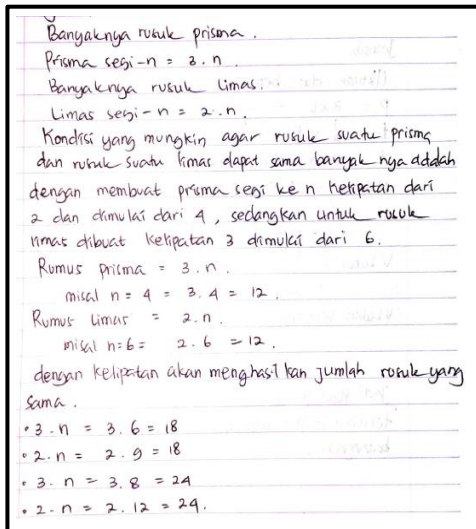 Banyaknya rusuk prisma.
Prisma segi-n = 3.n
Banyaknya rusuk limas.
Limas segi-n = 2.n.
Kondisi yang mungkin agar rusuk suatu prisma
dan rusuk suatu limas dapat sama banyak nya adalah
dengan membuat prisma segi ke n kelipatan dari
2 dan dimulai dari 4, sedangkan untuk rusuk
limas dibuat kelipatan 3 dimulai dari 6.
Rumus prisma = 3.n.
misal n = 4 = 3.4 = 12.
Rumus Limas = 2.n.
misal n=6 = 2.6 = 12.
dengan kelipatan akan menghasilkan jumlah rusuk yang
sama.
• 3.n = 3.6 = 18
• 2.n = 2.9 = 18
• 3.n = 3.8 = 24
• 2.n = 2.12 = 24.